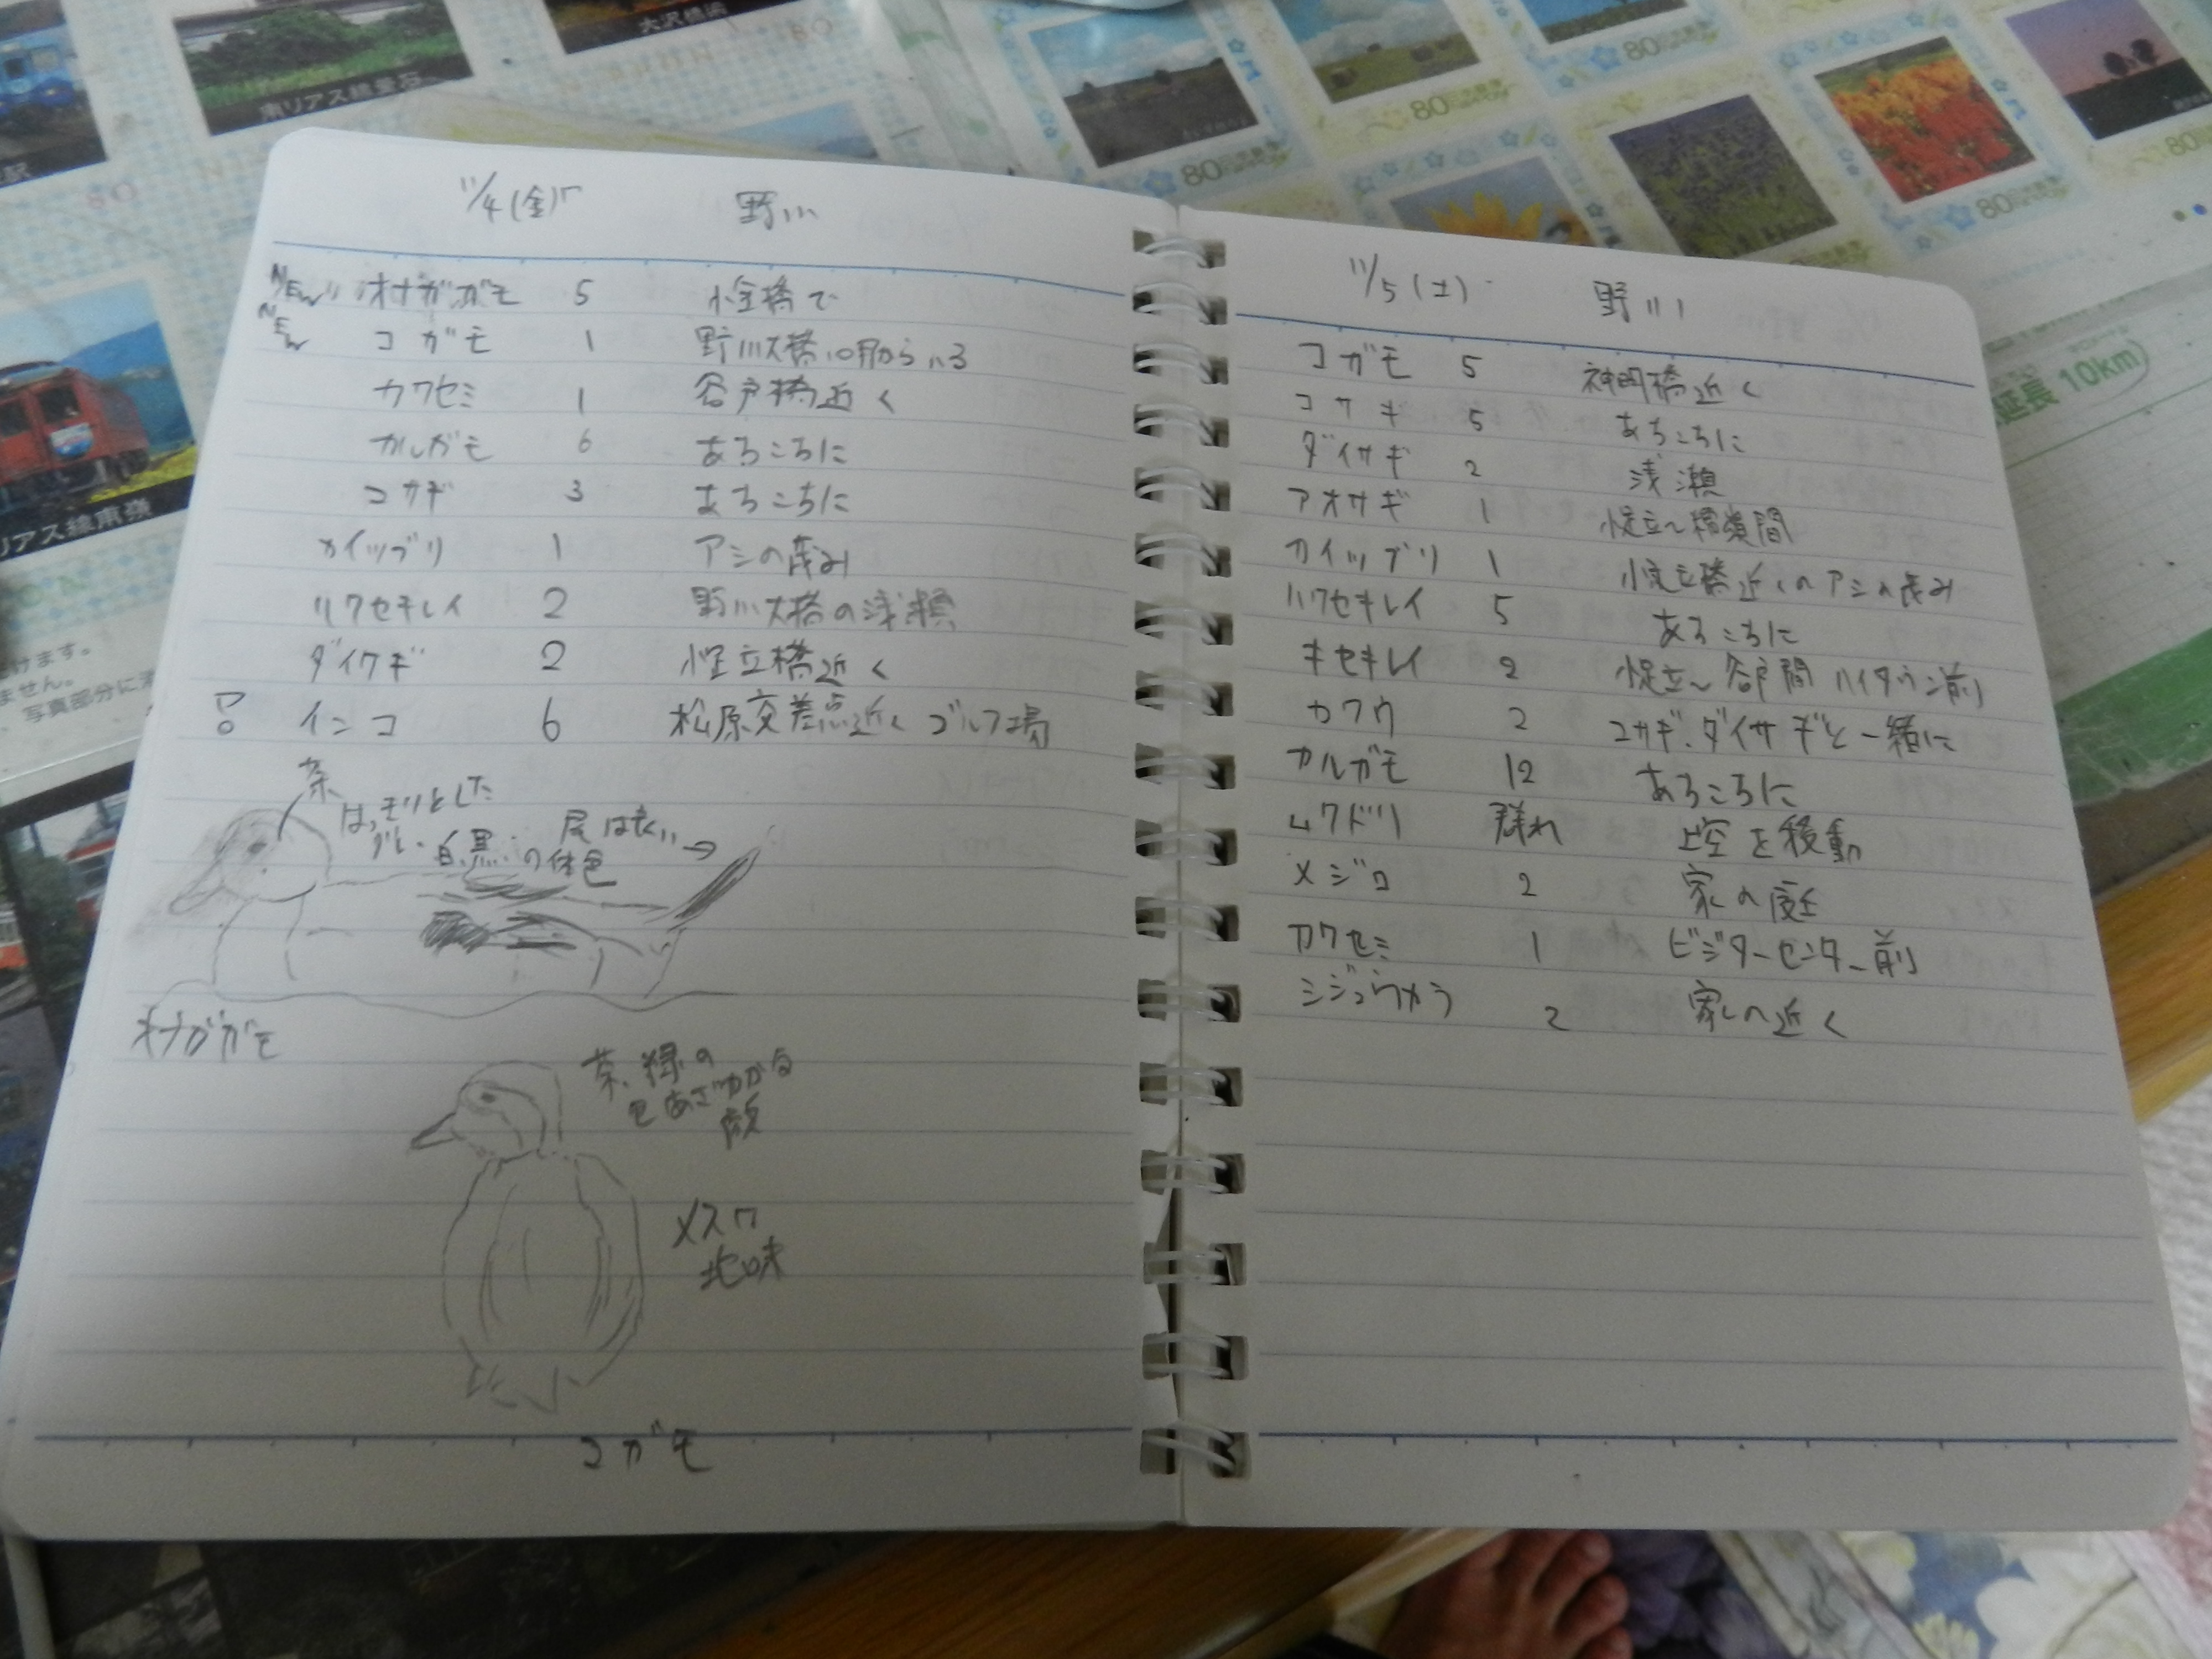 大沢橋浜
南リアス線釜石
80
80
80
80
80
リアス線南張
延長 10km)
けます。
ません。
写真部分に
11/4(金)
野川
NEW!! オナガガモ 5 小金橋で
NEW コガモ 1 野川大橋 10月からいる
カワセミ 1 谷戸橋近く
カルガモ 6 あちこちに
コサギ 3 あちこちに
カイツブリ 1 アシの茂み
ハクセキレイ 2 野川大橋の浅瀬
ダイサギ 2 小足立橋近く
? インコ 6 松原交差点近く ゴルフ場
茶
はっきりとした
グレー 白、黒、の体色
尾は長い→
オナガガモ
茶、緑の
色あざやかな
顔
メスは
地味
コガモ
11/5(土)
野川
コガモ 5 神明橋近く
コサギ 5 あちこちに
ダイサギ 2 浅瀬
アオサギ 1 小足立〜
カイツブリ 1 小足立橋近くのアシの茂み
ハクセキレイ 5 あちこちに
キセキレイ 2 小足立〜谷戸間 ハイタウン前
カワウ 2 コサギ、ダイサギと一緒に
カルガモ 12 あちこちに
ムクドリ 群れ 上空を移動
メジロ 2 家の庭
カワセミ 1 ビジターセンター前
シジュウカラ 2 家の近く